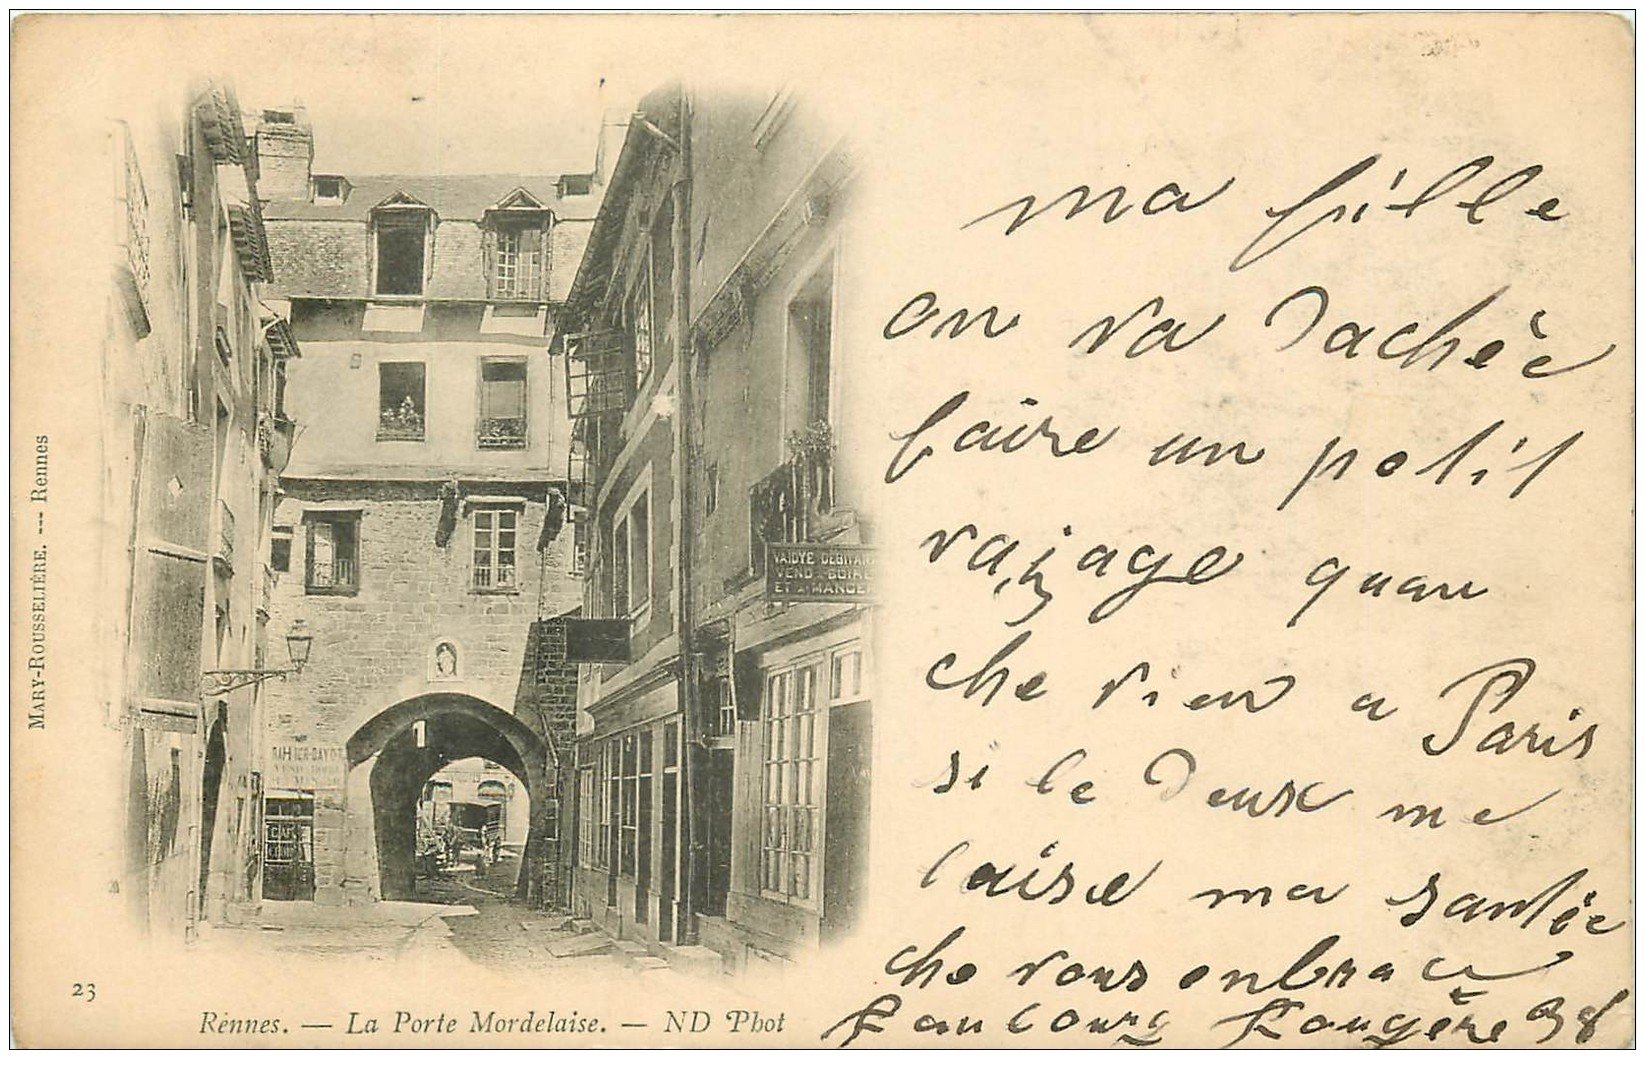 MARY-ROUSSELIÈRE. --- Rennes
VAIDYE DEBITANT
VEND A BOIRE
ET A MANGER
CAFÉ
23
Rennes. — La Porte Mordelaise. — ND Phot
ma fille
on va dachée
faire un petit
vajage quan
che vien a Paris
si le deux me
laise ma santée
che vous enbrace
Faubourg Fougère 98